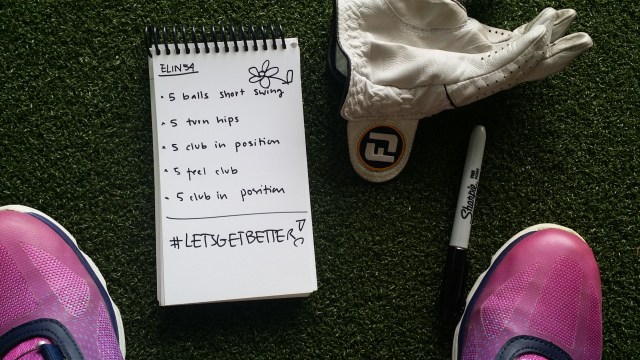 ELIN94
• 5 balls short swing
• 5 turn hips
• 5 club in position
• 5 feel club
• 5 club in position
#LETSGETBETTER
FJ
Sharpie